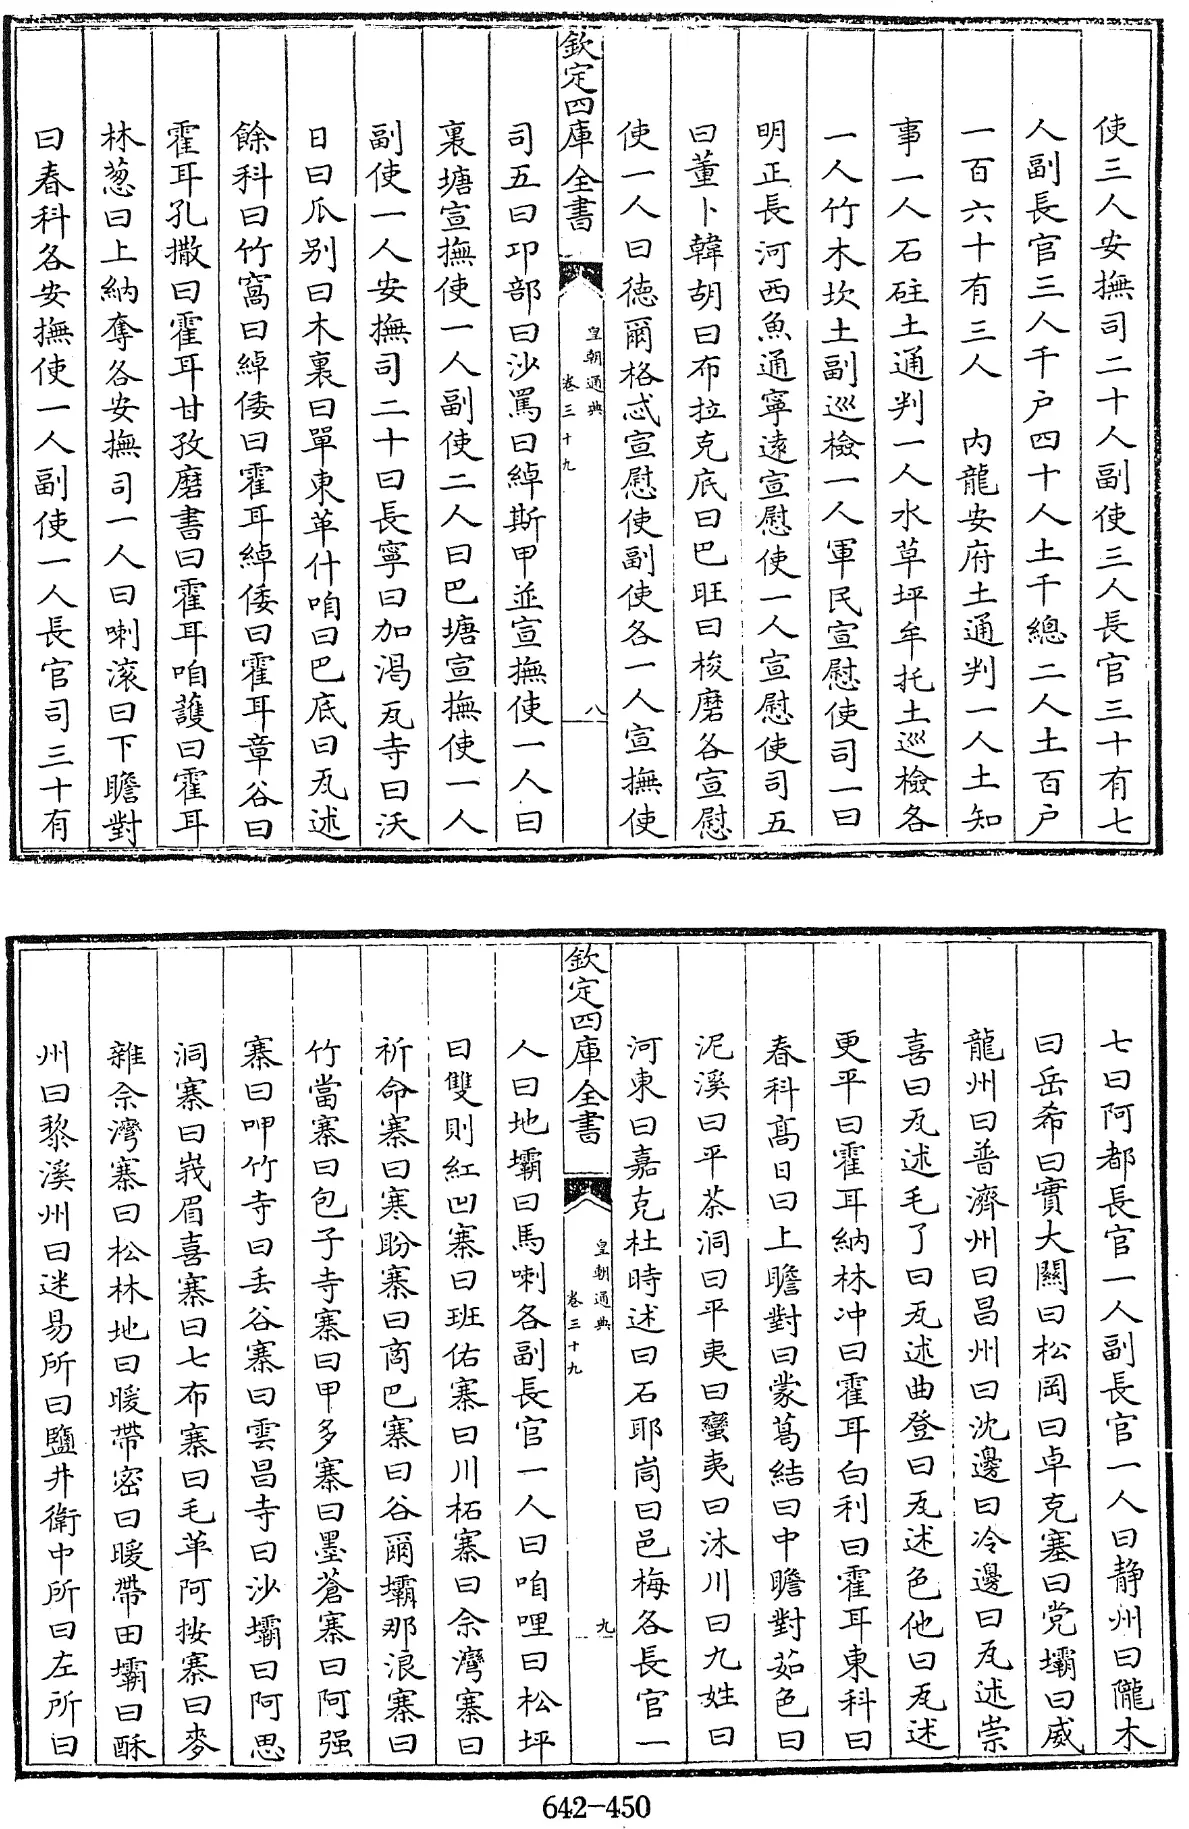 使三人安撫司二十人副使三人長官三十有七
人副長官三人千户四十人土千總二人土百户
一百六十有三人 内龍安府土通判一人土知
事一人石砫土通判一人水草坪牟托土巡檢各
一人竹木坎土副巡檢一人軍民宣慰使司一曰
明正長河西魚通寧遠宣慰使一人宣慰使司五
曰董卜韓胡曰布拉克底曰巴旺曰梭磨各宣慰
使一人曰徳爾格忒宣慰使副使各一人宣撫使
欽定四庫全書
皇朝通典
卷三十九
八
司五曰卭部曰沙罵曰綽斯甲並宣撫使一人曰
裏塘宣撫使一人副使二人曰巴塘宣撫使一人
副使一人安撫司二十曰長寧曰加渴瓦寺曰沃
日曰瓜别曰木裏曰單東革什咱曰巴底曰瓦述
餘科曰竹窩曰綽倭曰霍耳綽倭曰霍耳章谷曰
霍耳孔撒曰霍耳甘孜麻書曰霍耳咱䕶曰霍耳
林葱曰上納奪各安撫司一人曰喇滚曰下瞻對
曰春科各安撫使一人副使一人長官司三十有
七曰阿都長官一人副長官一人曰静州曰隴木
曰岳希曰實大關曰松岡曰卓克塞曰党壩曰威
龍州曰普濟州曰昌州曰沈邊曰冷邊曰瓦述崇
喜曰瓦述毛了曰瓦述曲登曰瓦述色他曰瓦述
更平曰霍耳納林冲曰霍耳白利曰霍耳東科曰
春科髙日曰上瞻對曰蒙葛結曰中瞻對茹色曰
泥溪曰平茶洞曰平夷曰蠻夷曰沐川曰九姓曰
河東曰嘉克杜時述曰石耶峝曰邑梅各長官一
欽定四庫全書
皇朝通典
卷三十九
九
人曰地壩曰馬喇各副長官一人曰咱哩曰松坪
曰雙則紅凹寨曰班佑寨曰川柘寨曰佘灣寨曰
祈命寨曰寒盼寨曰商巴寨曰谷爾壩那浪寨曰
竹當寨曰包子寺寨曰甲多寨曰墨蒼寨曰阿强
寨曰呷竹寺曰丢谷寨曰雲昌寺曰沙壩曰阿思
洞寨曰峩眉喜寨曰七布寨曰毛革阿按寨曰麥
雜佘灣寨曰松林地曰暖帶密曰暖帶田壩曰酥
州曰黎溪州曰迷易所曰鹽井衛中所曰左所曰
642-450